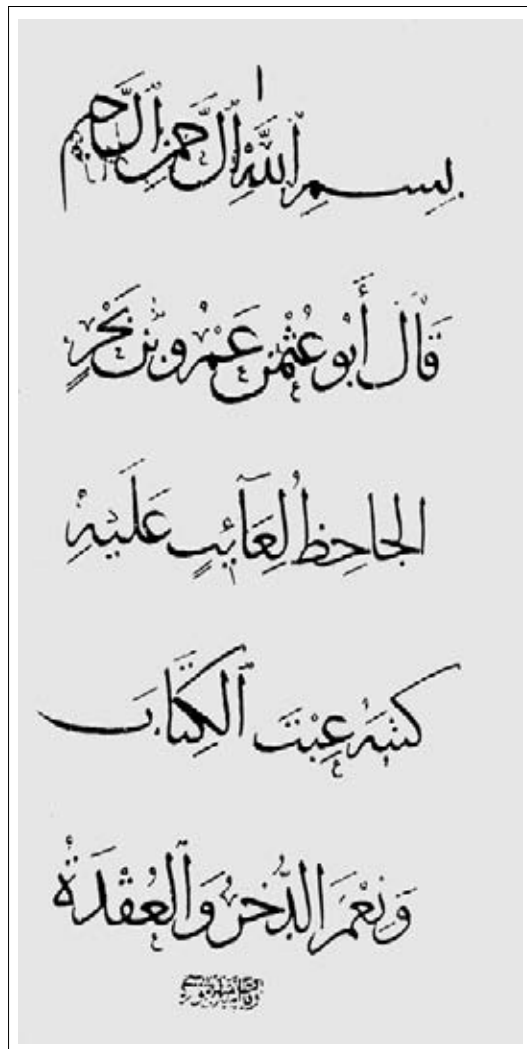 بِسمِ ٱللَّهِ ٱلرَّحمنِ ٱلرَّحيم
قَالَ أَبُو عُثْمٰنَ عَمْرُو بْنُ بَحْرٍ
الجاحِظُ لِعَآئِبٍ عَلَيْهِ
كتبَهُ عِبْتَ ٱلكِتَابَ
وَنِعْمَ الذُّخْرُ وَٱلْعُقْدَةُ